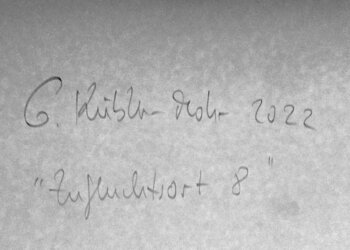 G. Kübler-Mohr 2022
"Zufluchtsort 8"